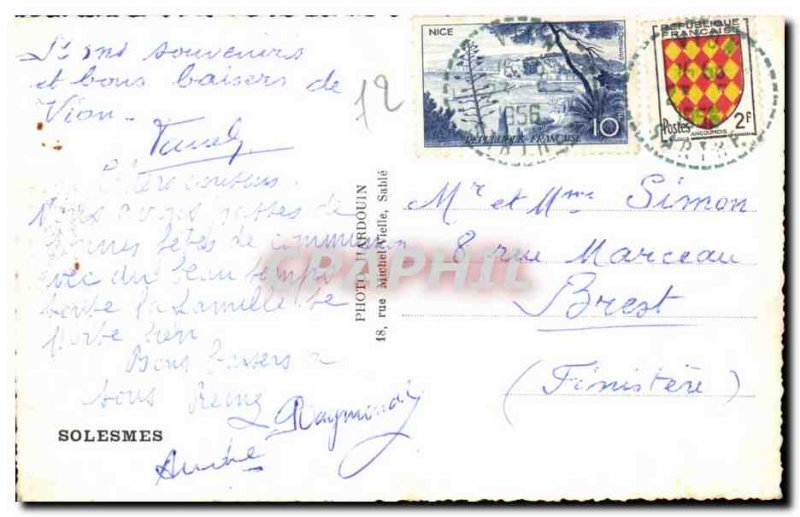 et bons baisers de
Vion.
Chers cousins
Nous avons passés de
bonnes fêtes de communion
avec du beau temps
toute la famille se
porte bien
Bons baisers a
tous Reine
Raymonde
André
SOLESMES
12
PHOTO HARDOUIN
18, rue Michel-Vielle, Sablé
NICE
1956
REPUBLIQUE FRANÇAISE
10F
REPUBLIQUE
FRANÇAISE
Postes
2F
ANGOUMOIS
SARTHE
Mr et Mme Simon
8 rue Marceau
Brest
(Finistère)
CPAPHIL